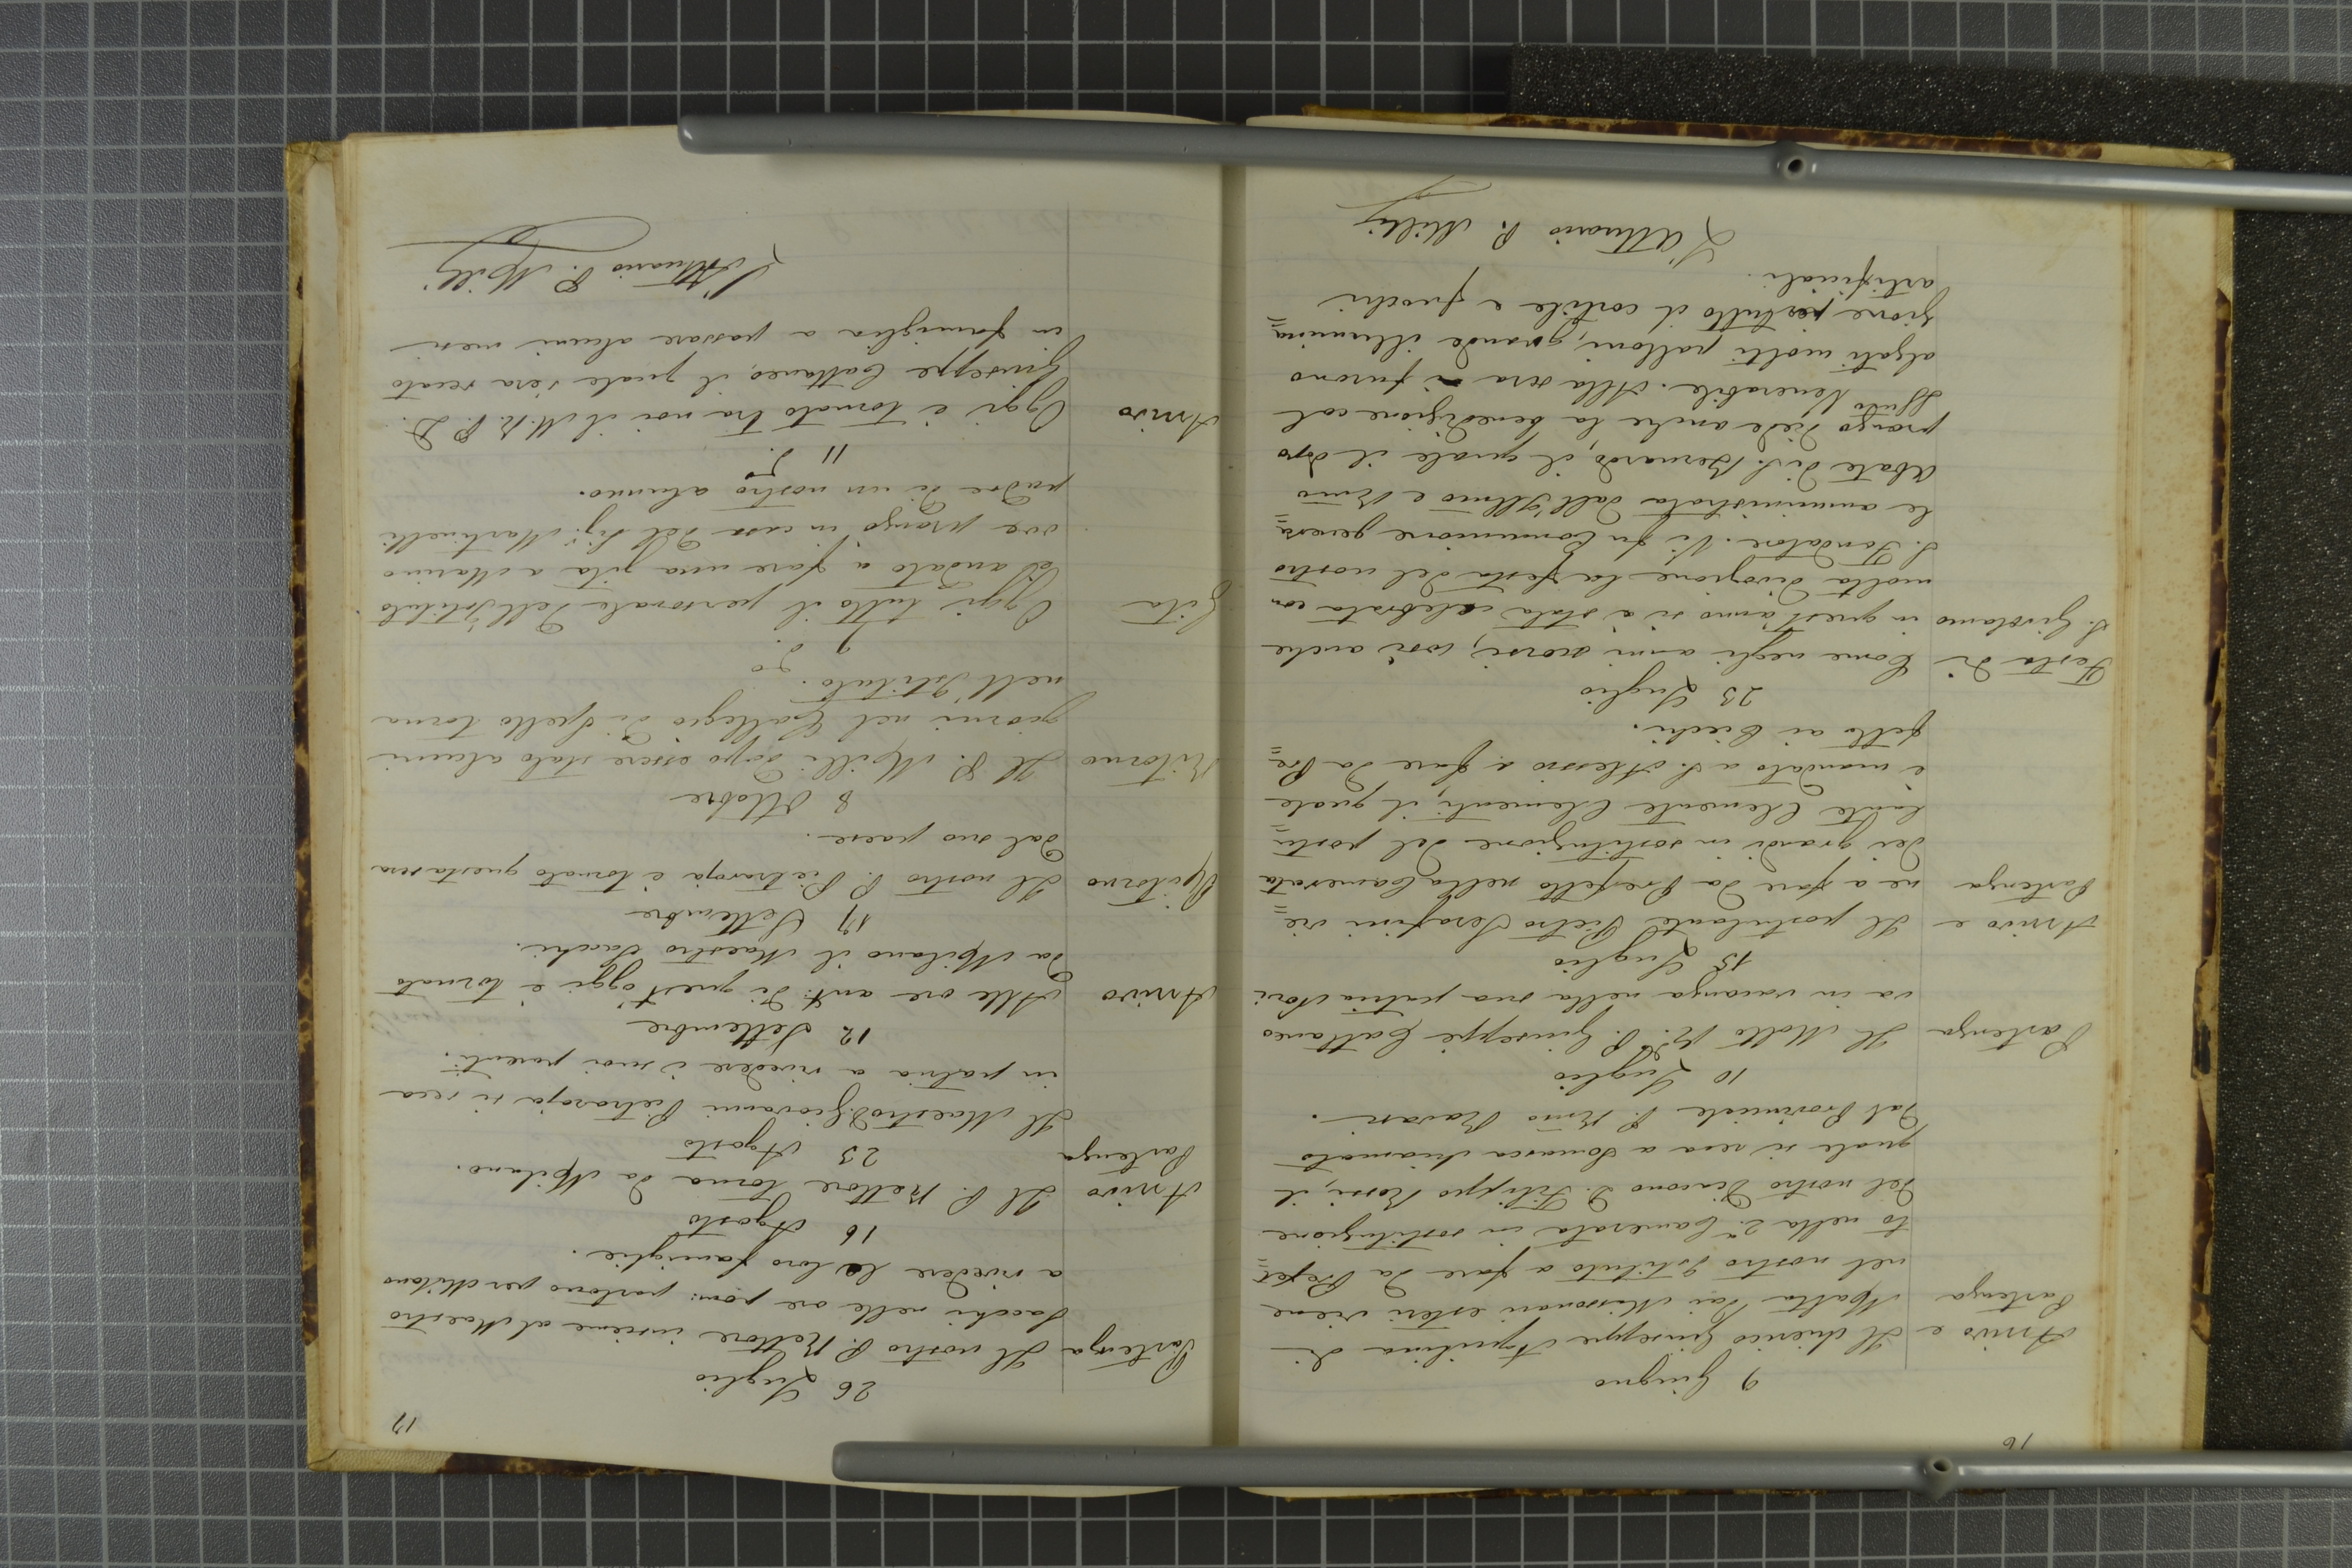 16
9 Giugno
Arrivo e Il chierico Giuseppe Aquilina di
Partenza Malta dai Missionari esteri viene
nel nostro Istituto a fare da Prefet=
to nella 2.a Camerata in sostituzione
del nostro Diacono D. Filippo Rossi, il
quale si reca a Somasca chiamato
dal Provinciale P. Rmo Ravasi.
10 Luglio
Partenza Il Molto R. P. D. Giuseppe Cattaneo
va in vacanza nella sua patria Novi
15 Luglio
Arrivo e Il postulante Pietro Serafini vie=
Partenza ne a fare da Prefetto nella Camerata
dei grandi in sostituzione del postu=
lante Clemente Clementi, il quale
è mandato a S. Alessio a fare da Pre=
fetto ai Ciechi.
23 Luglio
Festa di Come negli anni scorsi, così anche
S. Girolamo in quest'anno si è stata celebrata con
molta divozione la festa del nostro
S. Fondatore. Vi fu Comunione genera=
le amministrata dall'Illmo e Rmo
Abate di S. Bernardo, il quale il dopo
pranzo diede anche la benedizione col
SSmo Venerabile. Alla sera si furono
alzati molti palloni, grande illumina=
zione per tutto il cortile e fuochi
artificiali.
L'Attuario P. Milli
17
26 Luglio
Partenza Il nostro P. Rettore insieme al Maestro
Sacchi nelle ore pom: partono per Milano
a rivedere le loro famiglie.
16 Agosto
Arrivo Il P. Rettore torna da Milano.
23 Agosto
Partenza Il Maestro D. Giovanni Pietraroja si reca
in patria a rivedere i suoi parenti.
12 Settembre
Arrivo Alle ore ant: di quest'oggi è tornato
da Milano il Maestro Sacchi.
17 Settembre
Ritorno Il nostro P. Pietraroja è tornato questa sera
dal suo paese.
8 Ottobre
Ritorno Il P. Milli dopo essere stato alcuni
giorni nel Collegio di Spello torna
nell'Istituto.
9 do
Gita Oggi tutto il personale dell'Istituto
è andato a fare una gita a Marino
ove pranzò in casa del Sig.r Martinelli
padre di un nostro alunno.
11 do
Arrivo Oggi è tornato tra noi il M. R. P. D.
Giuseppe Cattaneo, il quale s'era recato
in famiglia a passare alcuni mesi
L'Attuario P. Milli